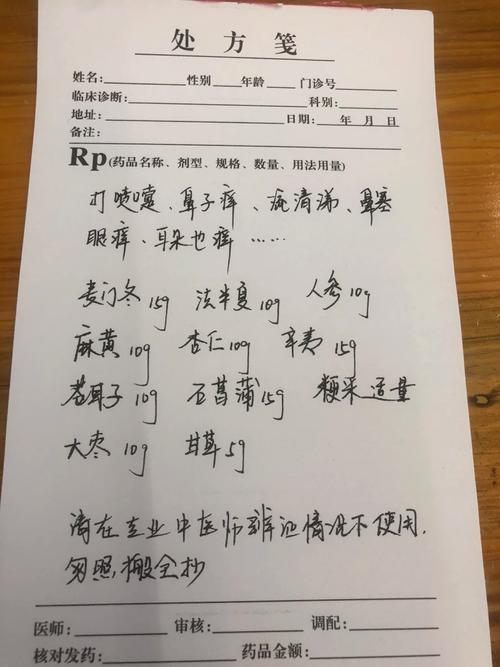 处方笺
姓名: 性别 年龄 门诊号
临床诊断: 科别:
地址: 日期: 年 月 日
备注:
Rp(药品名称、剂型、规格、数量、用法用量)
打喷嚏、鼻子痒、流清涕、鼻塞
眼痒、耳朵也痒……
麦门冬15g 法半夏10g 人参10g
麻黄10g 杏仁10g 辛夷15g
苍耳子10g 石菖蒲15g 粳米适量
大枣10g 甘草5g
请在专业中医师辨证情况下使用,
勿照搬全抄
医师: 审核: 调配:
核对发药: 药品金额: